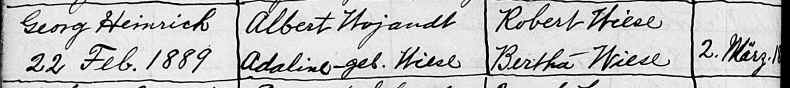 Georg Heinrich Albert Wojandt Robert Wiese
22 Feb. 1889 Adaline geb. Wiese Bertha Wiese 2. März.